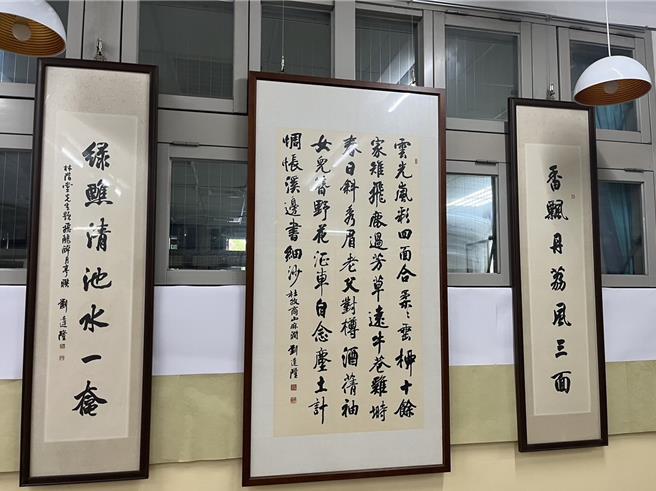 香飄丹荔風三面
雲光嵐彩四面合柔〻垂柳十餘
家雉飛鹿過芳草遠牛巷雞塒
春日斜秀眉老父對樽酒蒨袖
女兒簪野花征車自念塵土計
惆悵溪邊書細沙 杜牧商山麻澗 劉
綠蘸清池水一奩
先生 月亭聯 劉